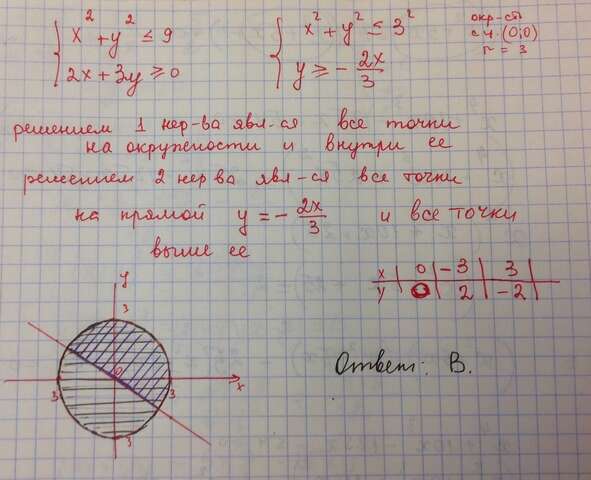 x² + y² ≤ 9
2x + 3y ≥ 0
x² + y² ≤ 3²
y ≥ - 2x/3
окр-сть
с ц. (0;0)
r = 3
решением 1 нер-ва явл-ся все точки
на окружности и внутри ее
решением 2 нер ва явл-ся все точки
на прямой y = - 2x/3 и все точки
выше ее
x | 0 | -3 | 3 |
y | 0 | 2 | -2 |
y
3
0
3 3 x
3
Ответ: В.